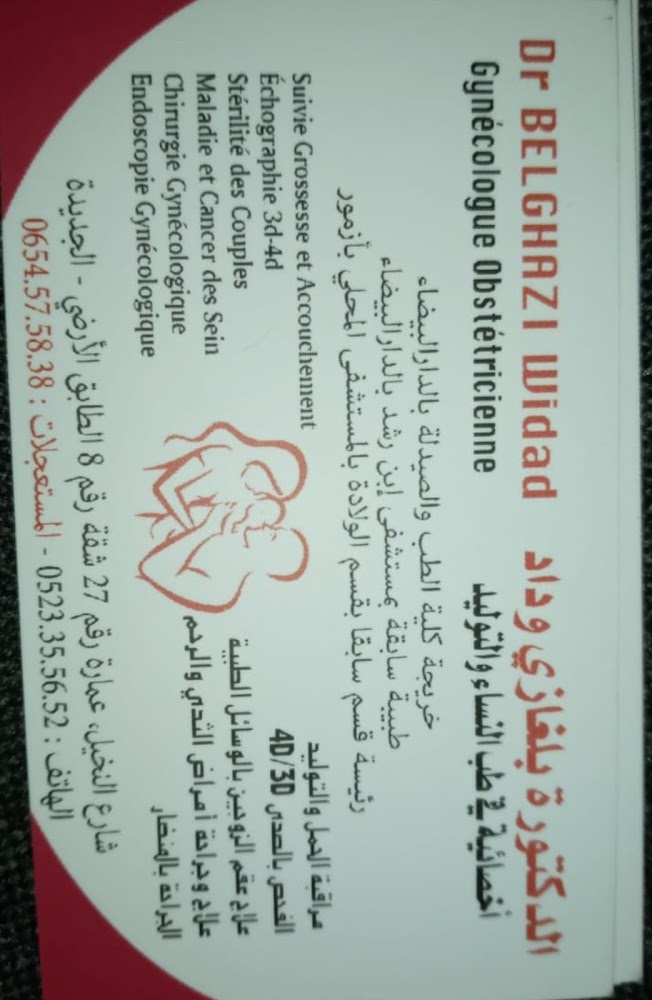 Dr BELGHAZI Widad الدكتورة بلغازي وداد
Gynécologue Obstétricienne أخصائية في طب النساء والتوليد
خريجة كلية الطب والصيدلة بالدارالبيضاء
طبيبة سابقة بمستشفى إبن رشد بالدارالبيضاء
رئيسة قسم سابقا بقسم الولادة بالمستشفى المحلي بأزمور
Suivie Grossesse et Accouchement
Échographie 3d-4d
Stérilité des Couples
Maladie et Cancer des Sein
Chirurgie Gynécologique
Endoscopie Gynécologique
مراقبة الحمل والتوليد
الفحص بالصدى 4D/3D
علاج عقم الزوجين بالوسائل الطبية
علاج وجراحة أمراض الثدي والرحم
الجراحة بالمنضار
شارع النخيل، عمارة رقم 27 شقة رقم 8 الطابق الأرضي - الجديدة
الهاتف : 0523.35.56.52 - المستعجلات : 0654.57.58.38